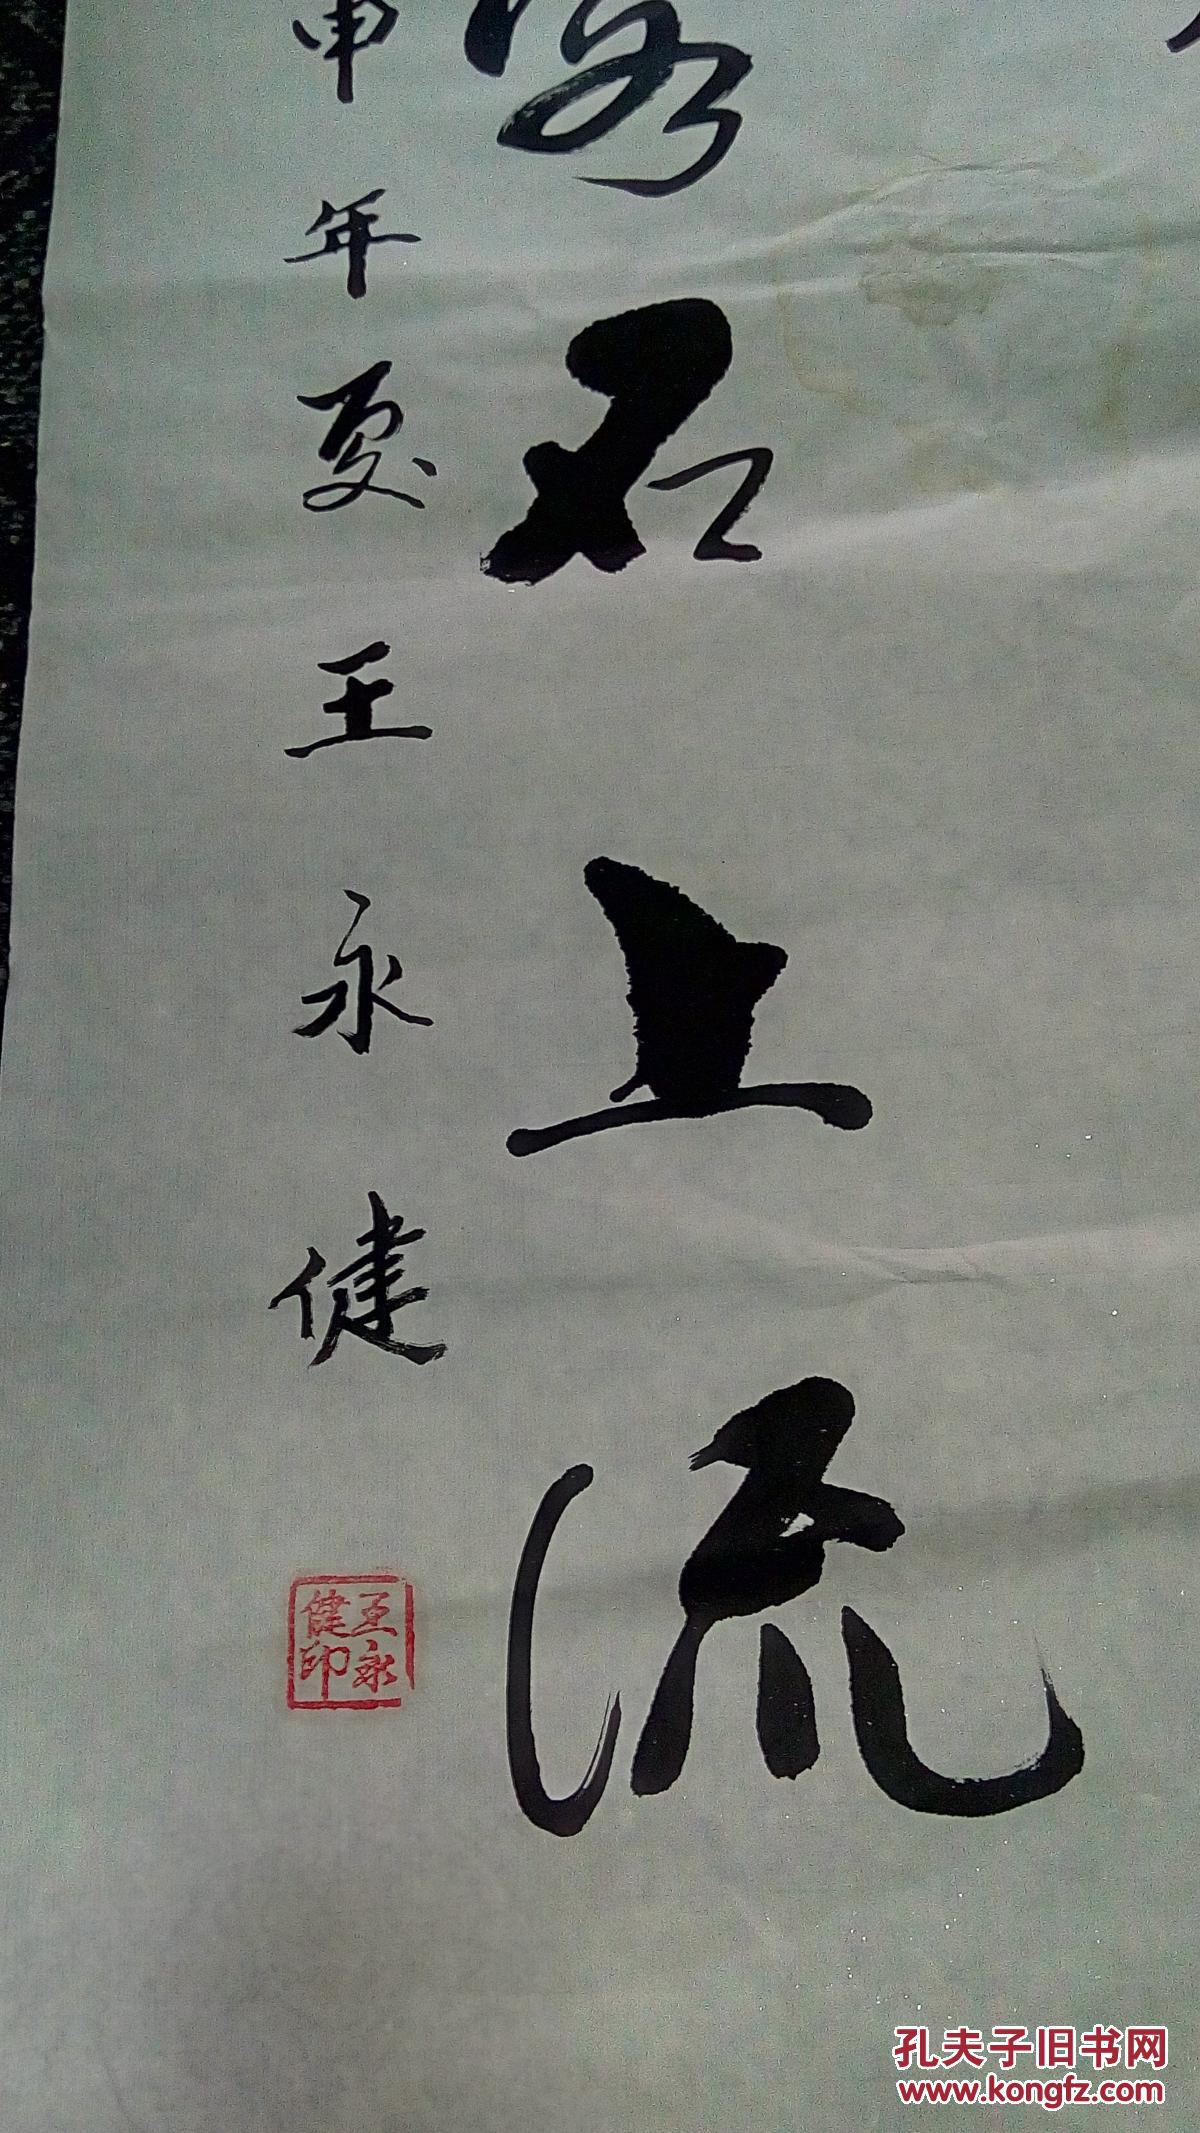 石上流
申年夏王永健
王永
健印
孔夫子旧书网
www.kongfz.com